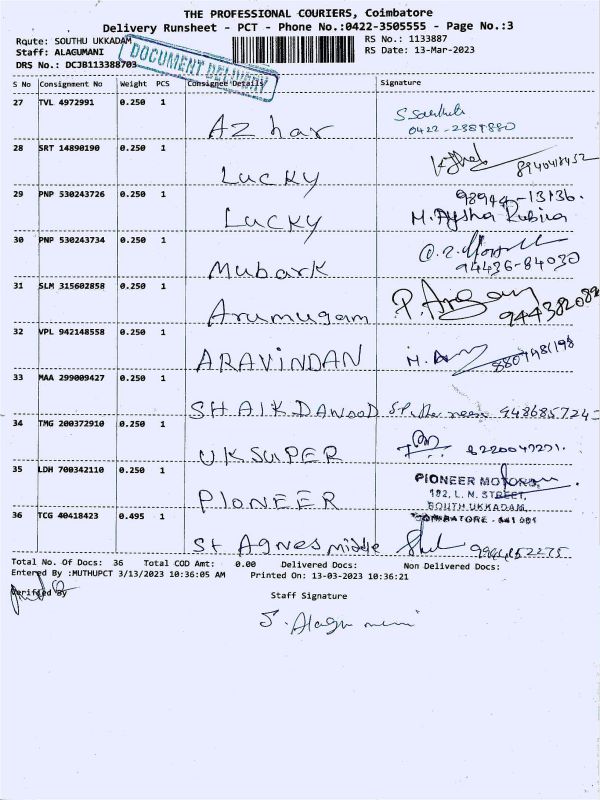 THE PROFESSIONAL COURIERS, Coimbatore
Delivery Runsheet - PCT - Phone No.:0422-3505555 - Page No.:3
Route: SOUTHU UKKADAM
RS No.: 1133887
Staff: ALAGUMANI
RS Date: 13-Mar-2023
DRS No.: DCJB113388703
DOCUMENT DELIVERY
S No Consignment No Weight PCS Consignee Details Signature
27 TVL 4972991 0.250 1
Azhar
28 SRT 14890190 0.250 1
Lucky 8940418452
29 PNP 530243726 0.250 1 98944-13136.
Lucky M. Aysha Rubina
30 PNP 530243734 0.250 1
Mubark 94436-84030
31 SLM 315602858 0.250 1
Arumugam
32 VPL 942148558 0.250 1
ARAVINDAN
33 MAA 299009427 0.250 1
SHAIK DAWOOD
34 TMG 200372910 0.250 1
UK SUPER
35 LDH 700342110 0.250 1 PIONEER MOTORS,
192, L. N. STREET,
PIONEER SOUTH UKKADAM,
36 TCG 40418423 0.495 1 COIMBATORE - 641 001
St Agnes middle
Total No. Of Docs: 36 Total COD Amt: 0.00 Delivered Docs: Non Delivered Docs:
Entered By :MUTHUPCT 3/13/2023 10:36:05 AM Printed On: 13-03-2023 10:36:21
Verified By
Staff Signature
S. Alagumani